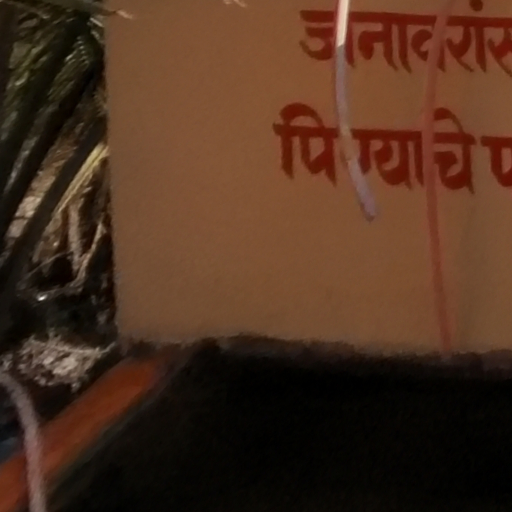 जनावरांस
पिण्याचे प